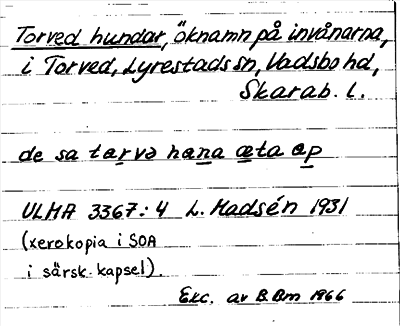 Torved hundar, öknamn på invånarna,
i Torved, Lyrestads sn, Vadsbo hd,
Skarab. l.
de sa tarvə hana æta ap
ULMA 3367:4 L. Hadsén 1931
(xerokopia i SOA
i särsk. kapsel).
Exc. av B.Bm 1966